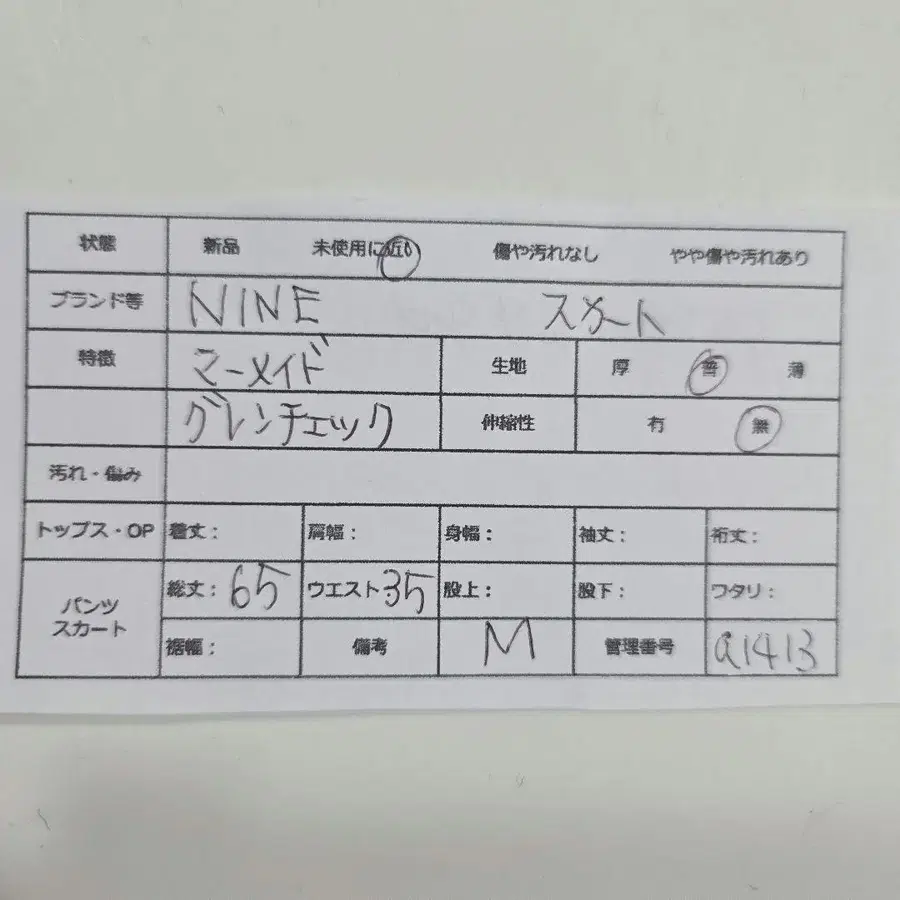 状態 新品 未使用に近い 傷や汚れなし やや傷や汚れあり
ブランド等 NINE スカート
特徴 マーメイド 生地 厚 普 薄
グレンチェック 伸縮性 有 無
汚れ・傷み
トップス・OP 着丈： 肩幅： 身幅： 袖丈： 裄丈：
パンツ スカート 総丈：65 ウエスト35 股上： 股下： ワタリ：
裾幅： 備考 M 管理番号 a1413